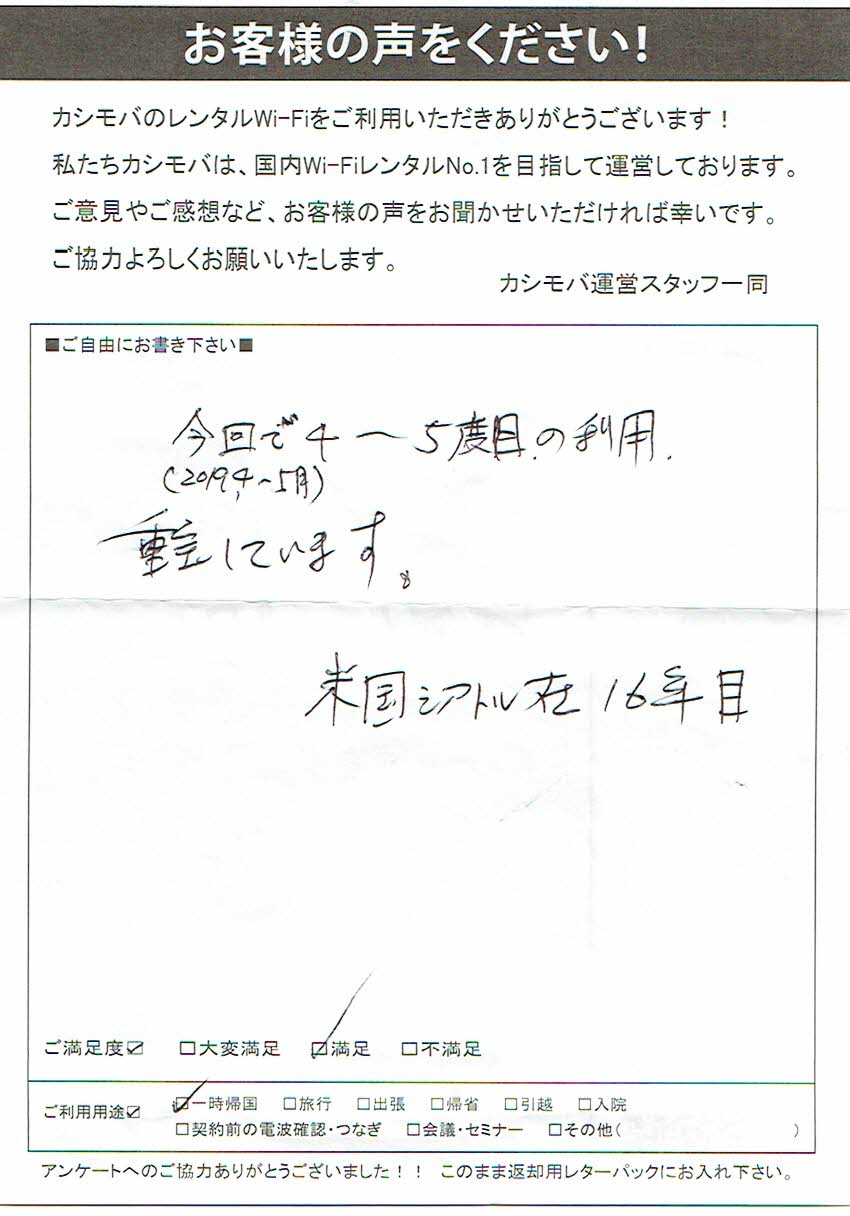 お客様の声をください!
カシモバのレンタルWi-Fiをご利用いただきありがとうございます！
私たちカシモバは、国内Wi-FiレンタルNo.1を目指して運営しております。
ご意見やご感想など、お客様の声をお聞かせいただければ幸いです。
ご協力よろしくお願いいたします。
カシモバ運営スタッフ一同
■ご自由にお書き下さい■
今回で4〜5度目の利用.
(2019,4〜5月)
重宝しています。
米国シアトル在16年目
ご満足度☑ □大変満足 ☑満足 □不満足
ご利用用途☑ ☑一時帰国 □旅行 □出張 □帰省 □引越 □入院
□契約前の電波確認・つなぎ □会議・セミナー □その他( )
アンケートへのご協力ありがとうございました！！ このまま返却用レターパックにお入れ下さい。